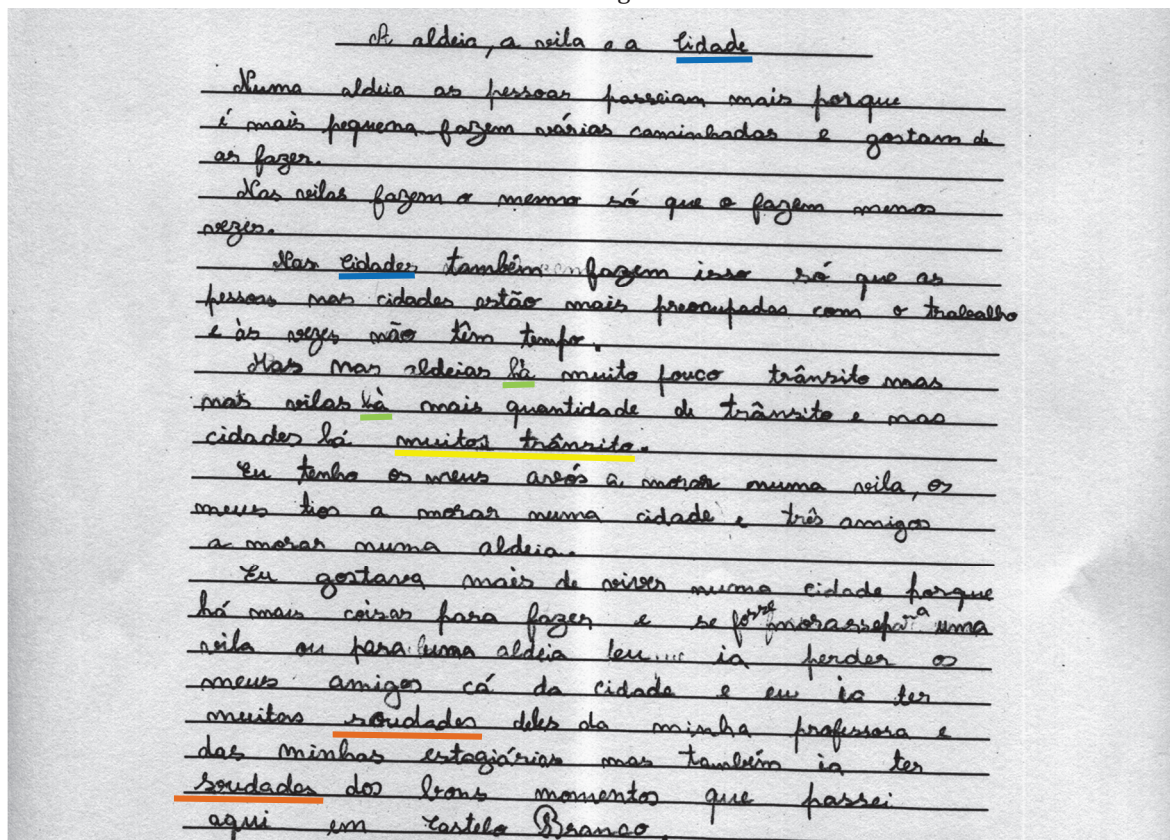 A aldeia, a vila e a Cidade
Numa aldeia as pessoas passeiam mais porque
é mais pequena fazem várias caminhadas e gostam de
as fazer.
Nas vilas fazem o mesmo só que o fazem menos
vezes.
Nas Cidades também fazem isso só que as
pessoas nas cidades estão mais preocupadas com o trabalho
e às vezes não têm tempo.
Mas nas aldeias hà muito pouco trânsito mas
nas vilas hà mais quantidade de trânsito e nas
cidades há muitos trânsito.
Eu tenho os meus avós a morar numa vila, os
meus tios a morar numa cidade e três amigos
a morar numa aldeia.
Eu gostava mais de viver numa cidade porque
há mais coisas para fazer e se fosse morasse para uma
vila ou para uma aldeia eu ia perder os
meus amigos cá da cidade e eu ia ter
muitas soudades deles da minha professora e
das minhas estagiárias mas também ia ter
soudades dos bons momentos que passei
aqui em Castelo Branco.